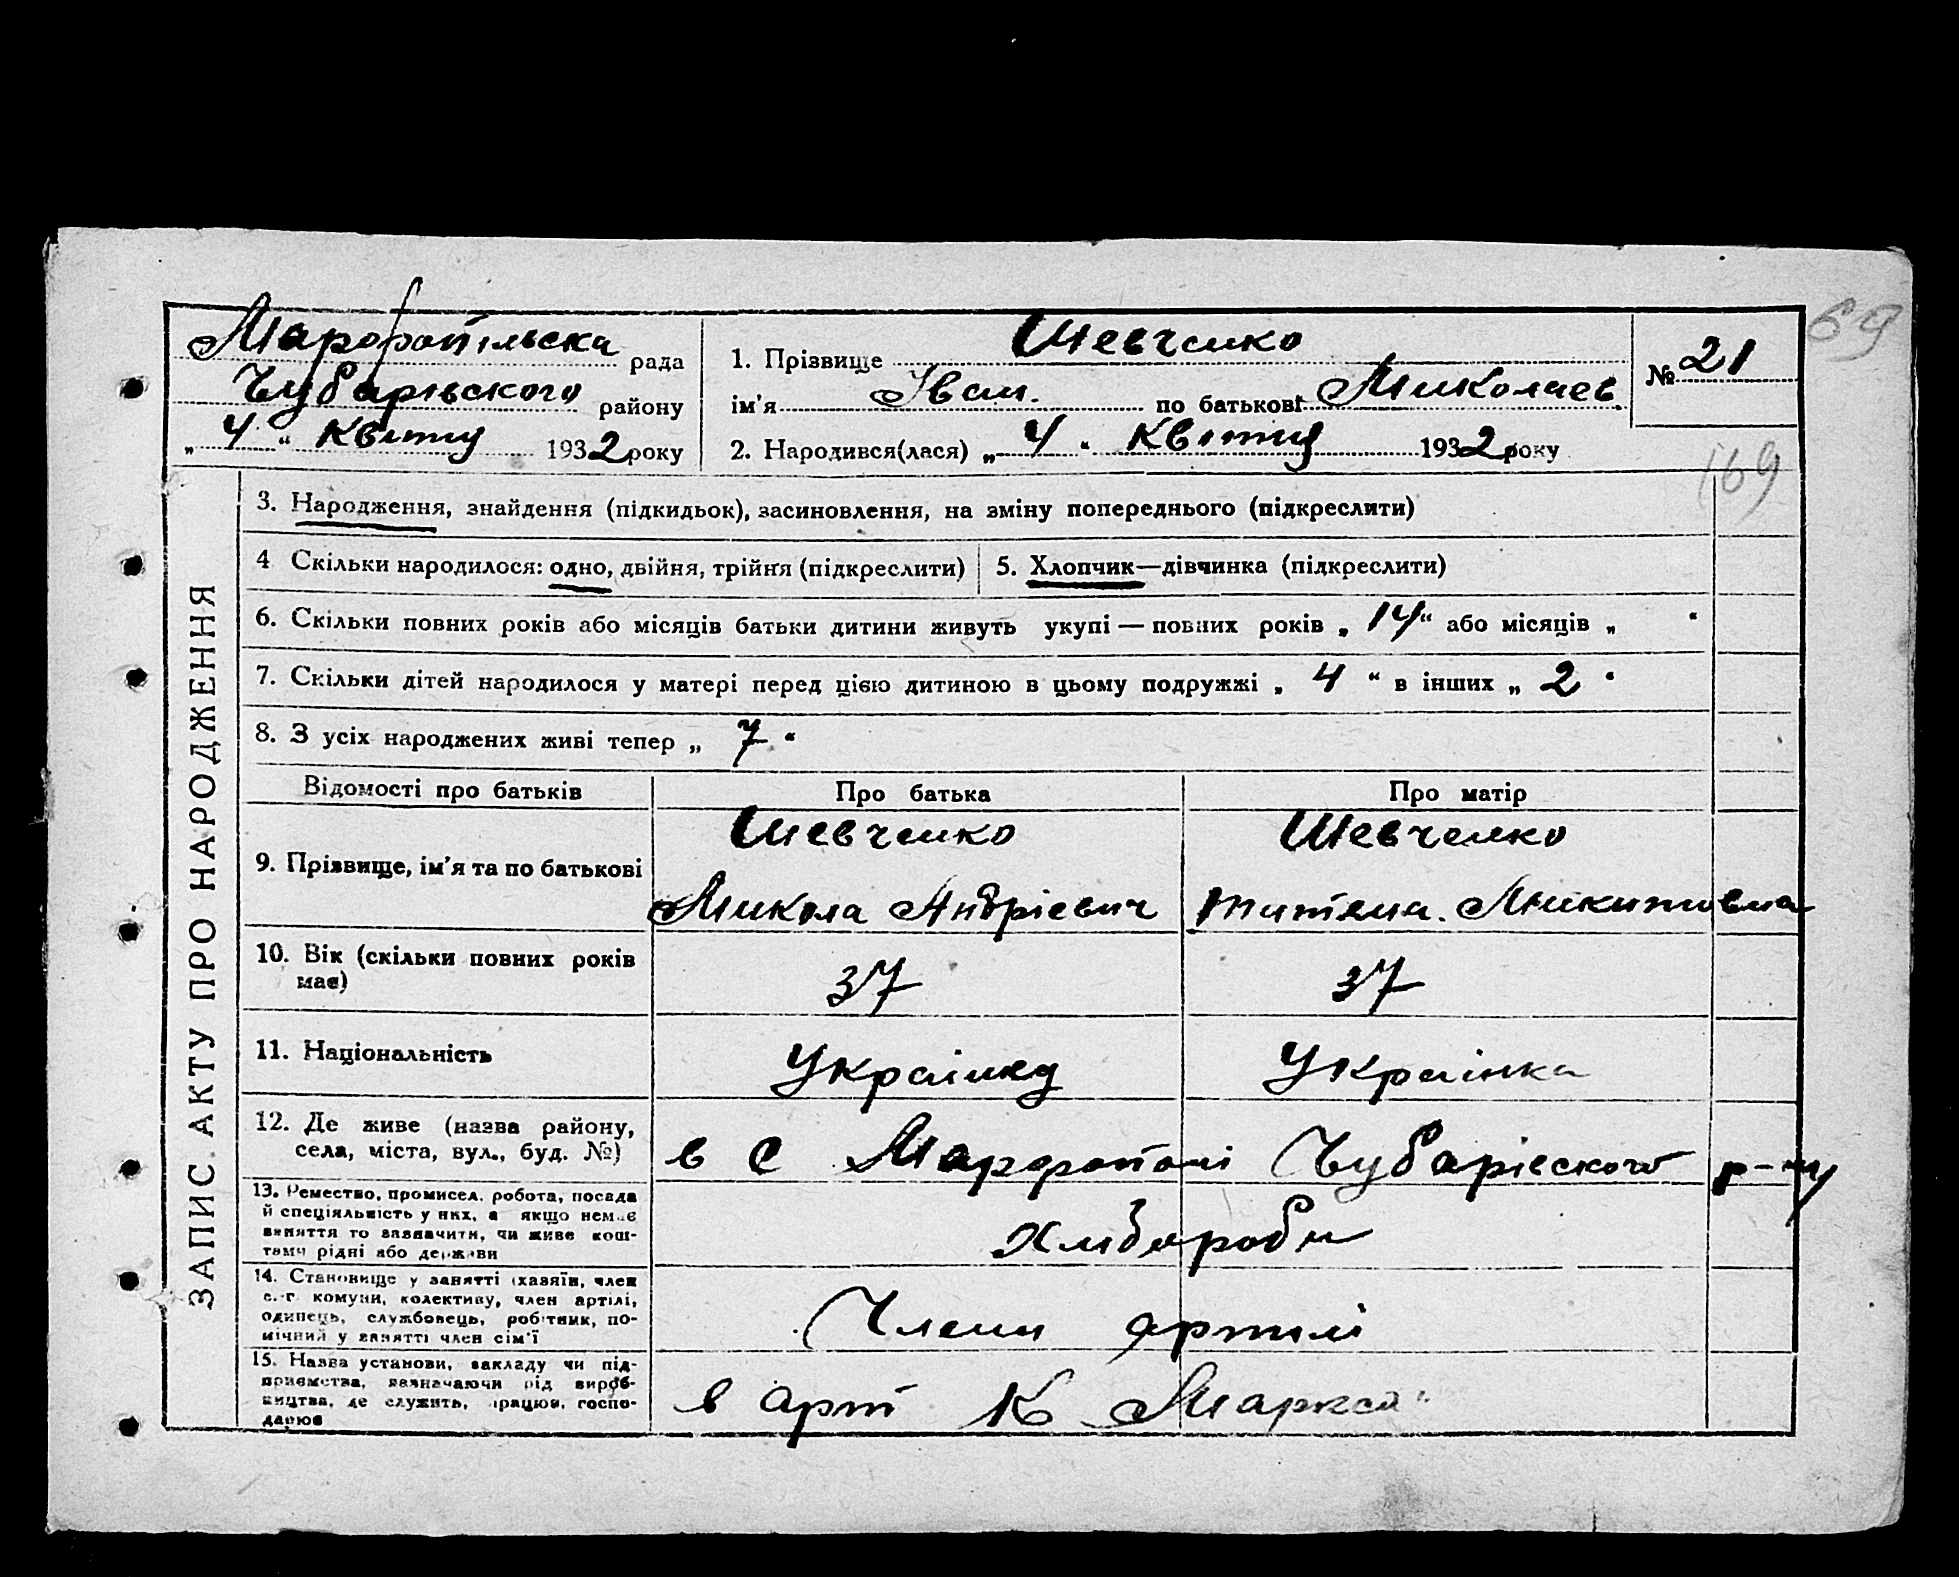 69
Марфопільська рада
Чубарівського району
„ 4 “ Квітня 1932 року
1. Прізвище Шевченко
ім'я Іван. по батькові Миколаев
2. Народився(лася) „ 4 “ Квітня 1932 року
№ 21
169
ЗАПИС АКТУ ПРО НАРОДЖЕННЯ
3. Народження, знайдення (підкидьок), засиновлення, на зміну попереднього (підкреслити)
4 Скільки народилося: одно, двійня, трійня (підкреслити)
5. Хлопчик—дівчинка (підкреслити)
6. Скільки повних років або місяців батьки дитини живуть укупі — повних років „ 14 “ або місяців „ “
7. Скільки дітей народилося у матері перед цією дитиною в цьому подружжі „ 4 “ в інших „ 2 “
8. З усіх народжених живі тепер „ 7 “
Відомості про батьків
Про батька
Про матір
9. Прізвище, ім'я та по батькові
Шевченко
Микола Андрієвич
Шевченко
Титяна. Микитовна
10. Вік (скільки повних років
має)
37
37
11. Національність
Українец
Українка
12. Де живе (назва району,
села, міста, вул., буд. №)
в с Марфополі Чубарівского р-ну
13. Ремество, промисел, робота, посада
й спеціяльність у них, а якщо немає
заняття то зазначити, чи живе кош-
тами рідні або держави
Хлібороби
14. Становище у занятті (хазяїн, член
с.-г. комуни, колективу, член артілі,
одинець, службовець, робітник, по-
мічний у занятті член сім'ї
Члени артілі
15. Назва установи, закладу чи під-
приємства, зазначаючи рід вироб-
ництва, де служить, працює, госпо-
дарює
в арт К Маркса